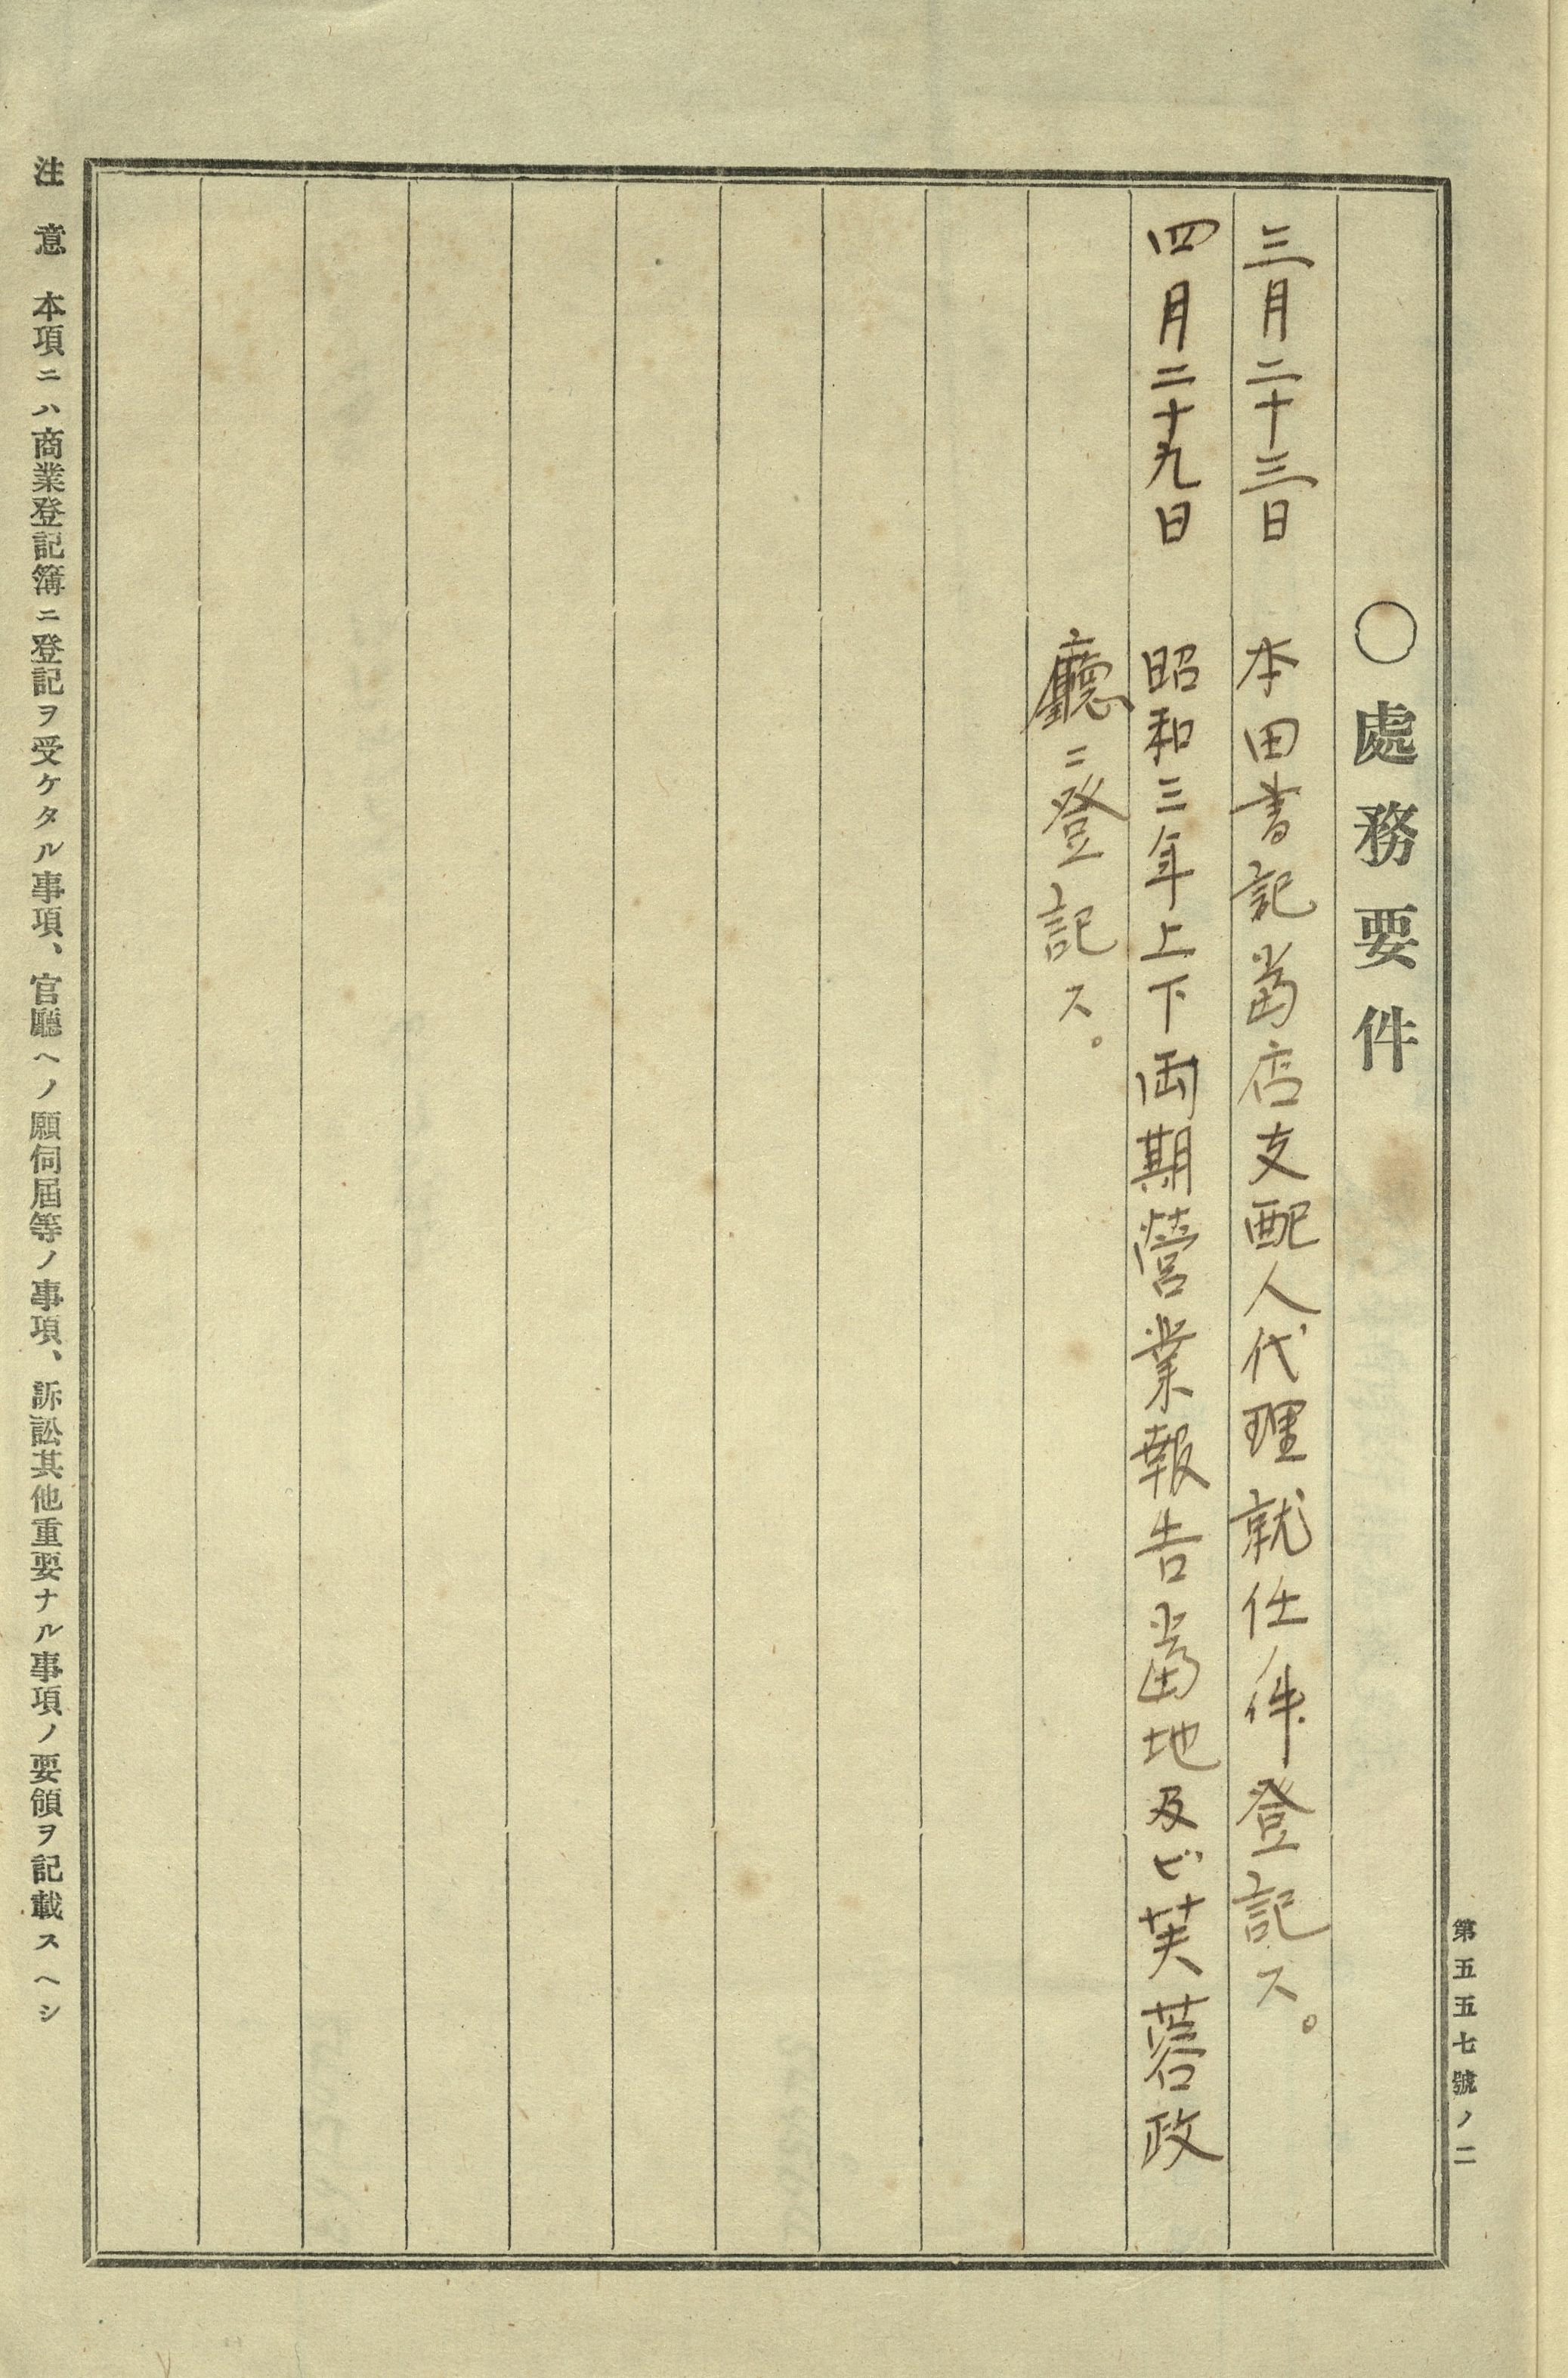 第五五七號ノ二
〇處務要件
三月二十三日 本田書記當店支配人代理就任件登記ス。
四月二十九日 昭和三年上下両期營業報告當地及ビ芙蓉政
廳ニ登記ス。
注意 本項ニハ商業登記簿ニ登記ヲ受ケタル事項、官廳ヘノ願伺屆等ノ事項、訴訟其他重要ナル事項ノ要領ヲ記載スヘシ